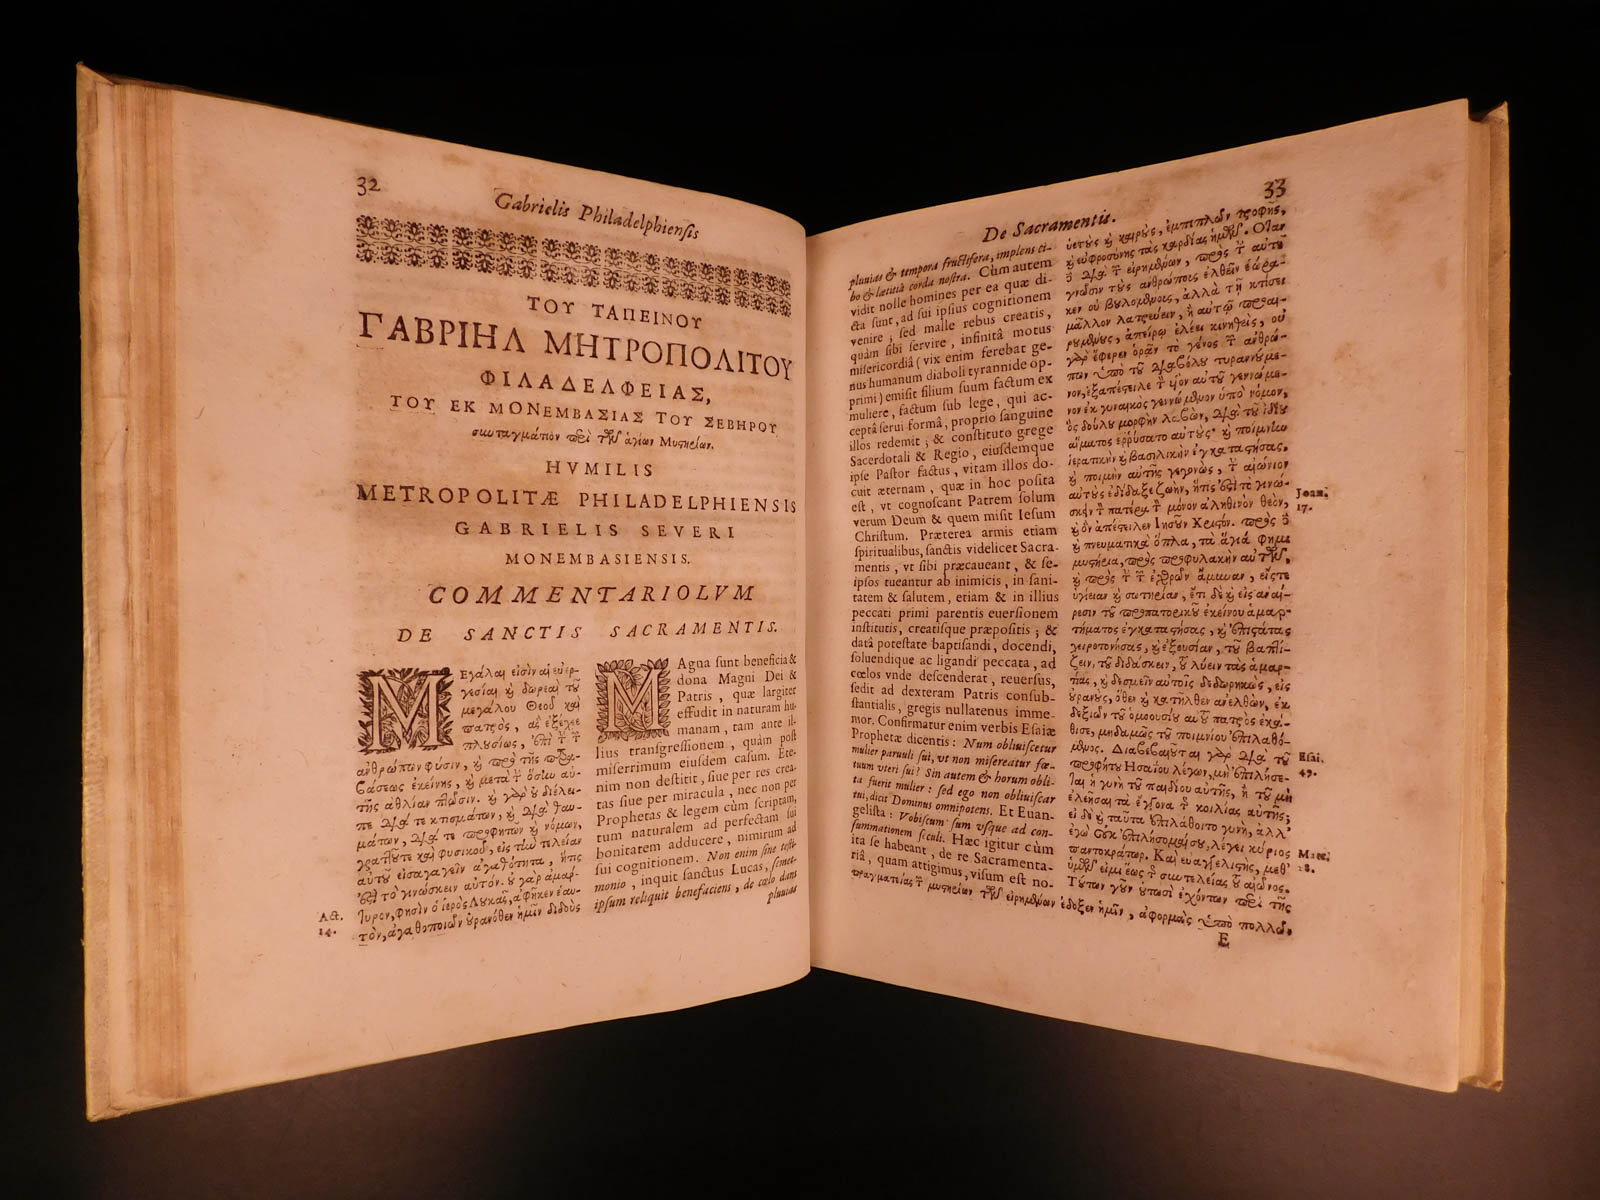 32
Gabrielis Philadelphiensis
ΤΟΥ ΤΑΠΕΙΝΟΥ
ΓΑΒΡΙΗΛ ΜΗΤΡΟΠΟΛΙΤΟΥ
ΦΙΛΑΔΕΛΦΕΙΑΣ,
ΤΟΥ ΕΚ ΜΟΝΕΜΒΑΣΙΑΣ ΤΟΥ ΣΕΒΗΡΟΥ
συνταγμάτιον περὶ τῶν ἁγίων Μυστηρίων.
HVMILIS
METROPOLITÆ PHILADELPHIENSIS
GABRIELIS SEVERI
MONEMBASIENSIS.
COMMENTARIOLVM
DE SANCTIS SACRAMENTIS.
ΜΕγάλαι εἰσὶν αἱ εὐερ-
γεσίαι καὶ δωρεαὶ τοῦ
μεγάλου Θεοῦ καὶ
πατρὸς, ἃς ἐξέχεε
πλουσίως, ἐπὶ τὴν τῶν
ἀνθρώπων φύσιν, καὶ πρὸ τῆς παρα-
βάσεως ἐκείνης, καὶ μετὰ τὴν ὅσων αὐ-
τῆς ἀθλίαν πτῶσιν. οὐ γὰρ διέλι-
πε διά τε κτισμάτων, διά τε θαυ-
μάτων, διά τε προφητῶν καὶ νόμων,
γραπτοῦ τε καὶ φυσικοῦ, εἰς τὴν τελείαν
αὐτοῦ εἰσαγαγεῖν ἀγαθότητα, ἥτις
ἐστὶ τὸ γινώσκειν αὐτόν. οὐ γὰρ ἀμάρ-
τυρον, φησὶν ὁ ἱερὸς Λουκᾶς, ἀφῆκεν ἑαυ-
τὸν, ἀγαθοποιῶν οὐρανόθεν ἡμῖν διδοὺς
Act.
14.
MAgna sunt beneficia &
dona Magni Dei &
Patris, quæ largiter
effudit in naturam hu-
manam, tam ante il-
lius transgressionem, quàm post
miserrimum eiusdem casum. Ete-
nim non destitit, siue per res crea-
tas siue per miracula, nec non per
Prophetas & legem cùm scriptam,
tum naturalem ad perfectam sui
bonitatem adducere, nimirum ad
sui cognitionem. Non enim sine testi-
monio, inquit sanctus Lucas, semet-
ipsum reliquit benefaciens, de cœlo dans
pluuias
33
De Sacramentis.
pluuias & tempora fructifera, implens ci-
bo & lætitiâ corda nostra. Cùm autem
vidit nolle homines per ea quæ di-
cta sunt, ad sui ipsius cognitionem
venire; sed malle rebus creatis,
quàm sibi servire, infinitâ motus
misericordiâ (vix enim ferebat ge-
nus humanum diaboli tyrannide op-
primi) emisit filium suum factum ex
muliere, factum sub lege, qui ac-
ceptâ serui formâ, proprio sanguine
illos redemit; & constituto grege
Sacerdotali & Regio, eiusdemque
ipse Pastor factus, vitam illos do-
cuit æternam, quæ in hoc posita
est, vt cognoscant Patrem solum
verum Deum & quem misit Iesum
Christum. Præterea armis etiam
spiritualibus, sanctis videlicet Sacra-
mentis, vt sibi præcaueant, & se-
ipsos tueantur ab inimicis, in sani-
tatem & salutem, etiam & in illius
peccati primi parentis euersionem
institutis, creatisque præpositis; &
datâ potestate baptisandi, docendi,
soluendique ac ligandi peccata, ad
cœlos vnde descenderat, reuersus,
sedit ad dexteram Patris consub-
stantialis, gregis nullatenus imme-
mor. Confirmatur enim verbis Esaiæ
Prophetæ dicentis: Num obliuiscetur
mulier paruuli sui, vt non misereatur fœ-
tuum vteri sui? Sin autem & horum obli-
ta fuerit mulier: sed ego non obliuiscar
tui, dicit Dominus omnipotens. Et Euan-
gelista: Vobiscum sum vsque ad con-
summationem seculi. Hæc igitur cùm
ita se habeant, de re Sacramenta-
riâ, quam attigimus, visum est no-
ὑετοὺς καὶ καιροὺς, ἐμπιπλῶν τροφῆς,
καὶ εὐφροσύνης τὰς καρδίας ἡμῶν. Ὅταν
ὁ διὰ τῶν εἰρημένων, πρὸς τὴν αὐτοῦ
γνῶσιν τοὺς ἀνθρώπους ἐλθεῖν ἑώρα-
κεν οὐ βουλομένους, ἀλλὰ τῇ κτίσει
μᾶλλον λατρεύειν, ἢ αὐτῷ προαι-
ρουμένους, ἀπείρῳ ἐλέει κινηθεὶς, οὐ
γὰρ ἔφερεν ὁρᾷν τὸ γένος τῶν ἀνθρώ-
πων ὑπὸ τοῦ διαβόλου τυραννούμε-
νον, ἐξαπέστειλε τὸν υἱὸν αὐτοῦ γεννώμε-
νον ἐκ γυναικὸς γεννώμενον ὑπὸ νόμον,
ὃς δούλου μορφὴν λαβὼν, διὰ τοῦ ἰδίου
αἵματος ἐῤῥύσατο αὐτούς· καὶ ποίμνιον
ἱερατικὴν καὶ βασιλικὴν ἐγκαταστήσας,
καὶ ποιμὴν αὐτῆς γεγονὼς, τὴν αἰώνιον
αὐτοὺς ἐδίδαξε ζωὴν, ἥτις ἐστὶ τὸ γινώ-
σκειν τὸν πατέρα τὸν μόνον ἀληθινὸν θεὸν,
καὶ ὃν ἀπέστειλεν Ιησοῦν Χριστόν. πρὸς δὲ
καὶ πνευματικὰ ὅπλα, τὰ ἅγιά φημι
μυστήρια, πρὸς προφυλακὴν αὐτῶν,
καὶ πρὸς τὴν τῶν ἐχθρῶν ἄμυναν, εἴς τε
ὑγίειαν καὶ σωτηρίαν, ἔτι δὲ καὶ εἰς ἀναί-
ρεσιν τοῦ προπατορικοῦ ἐκείνου ἁμαρ-
τήματος ἐγκαταστήσας, καὶ ἐπιστάτας
χειροτονήσας, καὶ ἐξουσίαν, τοῦ βαπτί-
ζειν, τοῦ διδάσκειν, τοῦ λύειν τὰς ἁμαρ-
τίας, καὶ δεσμεῖν αὐτοῖς δεδωρηκὼς, εἰς
οὐρανοὺς, ὅθεν καὶ κατῆλθεν ἀνελθὼν, ἐκ
δεξιῶν τοῦ ὁμοουσίου αὐτοῦ πατρὸς ἐκά-
θισε, μηδαμῶς τοῦ ποιμνίου ἐπιλαθό-
μενος. Διαβεβαιοῦται γὰρ διὰ τοῦ
προφήτου Ησαΐου λέγων, μὴ ἐπιλήσε-
ται ἡ γυνὴ τοῦ παιδίου αὐτῆς, ἢ τοῦ μὴ
ἐλεῆσαι τὰ ἔγγονα τῆς κοιλίας αὐτῆς;
εἰ δὲ καὶ ταῦτα ἐπιλάθοιτο γυνὴ, ἀλλ᾽
ἐγὼ οὐκ ἐπιλήσομαί σου, λέγει κύριος
παντοκράτωρ. Καὶ εὐαγγελιστὴς, μεθ᾽
ὑμῶν εἰμὶ ἕως τῆς συντελείας τοῦ αἰῶνος.
Τούτων γοῦν οὑτωσὶ ἐχόντων περὶ τῆς
πραγματείας τῶν μυστηρίων τῶν εἰρημένων ἔδοξεν ἡμῖν, ἀφορμὰς ὑπὸ πολλῶν
Joan.
17.
Esai.
49.
Matt.
28.
E